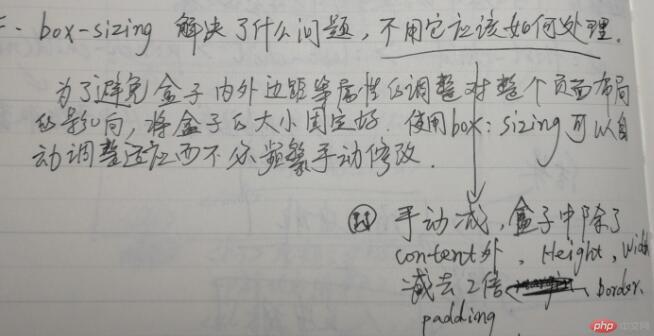 二、box-sizing 解决了什么问题，不用它应该如何处理.
为了避免盒子内外边距等属性的调整对整个页面布局
的影响，将盒子的大小固定好，使用box:sizing可以自
动调整适应而不必频繁手动修改.
手动减，盒子中除了
content外，Height，Width
减去2倍 border
padding
php 中文网